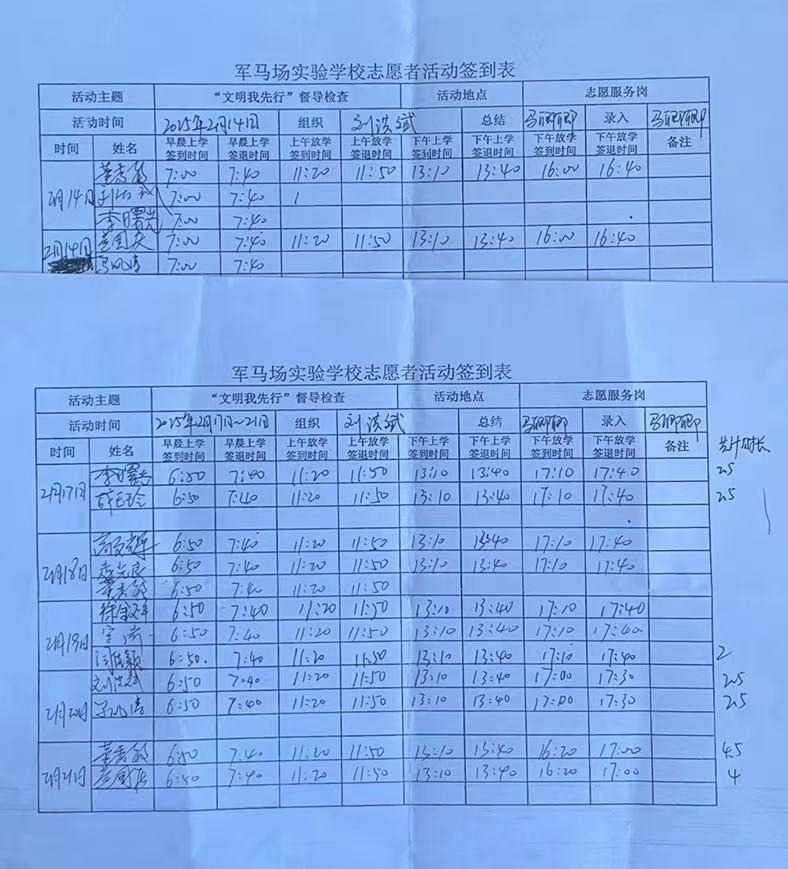 军马场实验学校志愿者活动签到表
活动主题 “文明我先行”督导检查 活动地点 志愿服务岗
活动时间 2025年2月14日 组织 刘洪斌 总结 录入
时间 姓名 早晨上学签到时间 早晨上学签退时间 上午放学签到时间 上午放学签退时间 下午上学签到时间 下午上学签退时间 下午放学签到时间 下午放学签退时间 备注
2月14日 董秀敏 7:00 7:40 11:20 11:50 13:10 13:40 16:00 16:40
7:00 7:40
李曙光 7:00 7:40
2月14日 7:00 7:40 11:20 11:50 13:10 13:40 16:00 16:40
7:00 7:40
军马场实验学校志愿者活动签到表
活动主题 “文明我先行”督导检查 活动地点 志愿服务岗
活动时间 2025年2月17日~21日 组织 刘洪斌 总结 录入
时间 姓名 早晨上学签到时间 早晨上学签退时间 上午放学签到时间 上午放学签退时间 下午上学签到时间 下午上学签退时间 下午放学签到时间 下午放学签退时间 备注 共计时长
2月17日 李曙光 6:50 7:40 11:20 11:50 13:10 13:40 17:10 17:40 2.5
6:50 7:40 11:20 11:50 13:10 13:40 17:10 17:40 2.5
2月18日 6:50 7:40 11:20 11:50 13:10 13:40 17:10 17:40
6:50 7:40 11:20 11:50 13:10 13:40 17:10 17:40
董秀敏 6:50 7:40 11:20 11:50
2月19日 6:50 7:40 11:20 11:50 13:10 13:40 17:10 17:40
6:50 7:40 11:20 11:50 13:10 13:40 17:10 17:40
6:50 7:40 11:20 11:50 13:10 13:40 17:10 17:40 2
2月20日 刘洪斌 6:50 7:40 11:20 11:50 13:10 13:40 17:00 17:30 2.5
6:50 7:40 11:20 11:50 13:10 13:40 17:00 17:30 2.5
2月21日 董秀敏 6:50 7:40 11:20 11:50 13:10 13:40 16:20 17:00 4.5
6:50 7:40 11:20 11:50 13:10 13:40 16:20 17:00 4